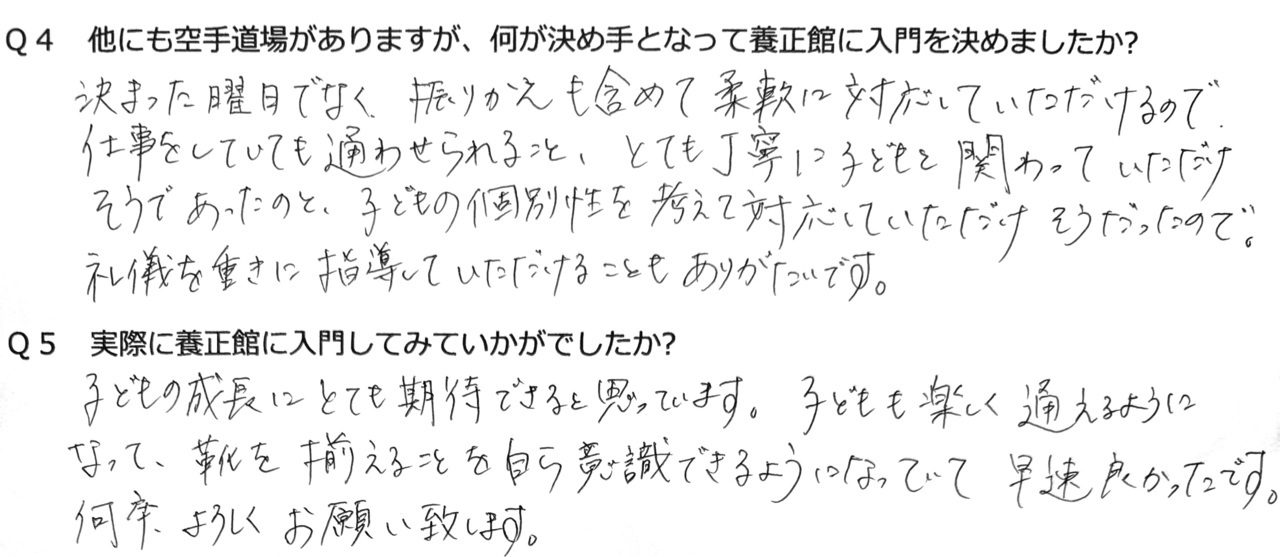 Q4 他にも空手道場がありますが、何が決め手となって養正館に入門を決めましたか?
決まった曜日でなく、振りかえも含めて柔軟に対応していただけるので、
仕事をしていても通わせられること、とても丁寧に子どもと関わっていただけ
そうであったのと、子どもの個別性を考えて対応していただけそうだったので。
礼儀を重きに指導していただけることもありがたいです。
Q5 実際に養正館に入門してみていかがでしたか?
子どもの成長にとても期待できると思っています。子どもも楽しく通えるように
なって、靴を揃えることを自ら意識できるようになっていて早速良かったです。
何卒、よろしくお願い致します。